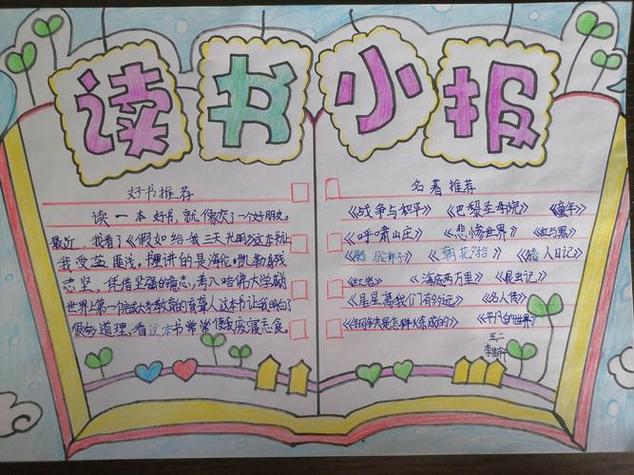 读书小报
好书推荐
读一本好书,就像交了一个好朋友。
最近,我看了《假如给我三天光明》这本书让
我受益匪浅。裡讲的是海伦·凯勒身残
志坚,凭借坚强的意志,考入哈佛大学,成
世界上第一个完成大学教育的盲聋人这本书让我明白了
很多道理,看这本书常常使我废寝忘食。
名著推荐
《战争与和平》 《巴黎圣母院》 《童年》
《呼啸山庄》 《悲惨世界》 《红与黑》
《骆驼祥子》 《朝花夕拾》 《猎人日记》
《红岩》 《海底两万里》 《昆虫记》
《星星离我们有多远》 《名人传》
《钢铁是怎样炼成的》 《平凡的世界》
五二